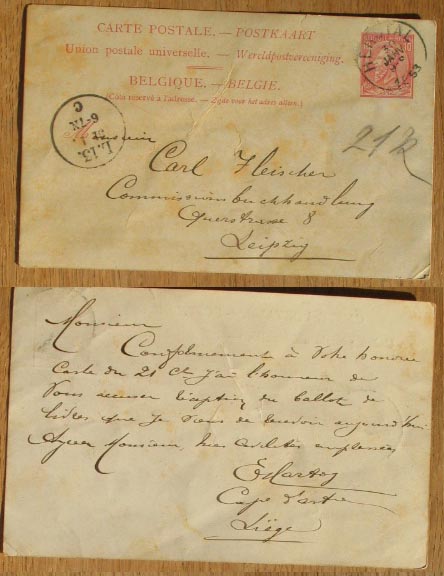 CARTE POSTALE. — POSTKAART
Union postale universelle. — Wereldpostvereeniging.
BELGIQUE. — BELGIE.
(Côté réservé à l'adresse. — Zijde voor het adres alleen.)
Monsieur
Carl Fleischer
Commissionsbuchhandlung
Querstrasse 8
Leipzig
L.13.
6-7N
C
93
Monsieur
Conformément à votre honorée
Carte du 21 Ct j'ai l'honneur de
Vous accuser réception du ballot de
livres que je viens de recevoir aujourd'hui
Agréez Monsieur, mes civilités empressées
Liège